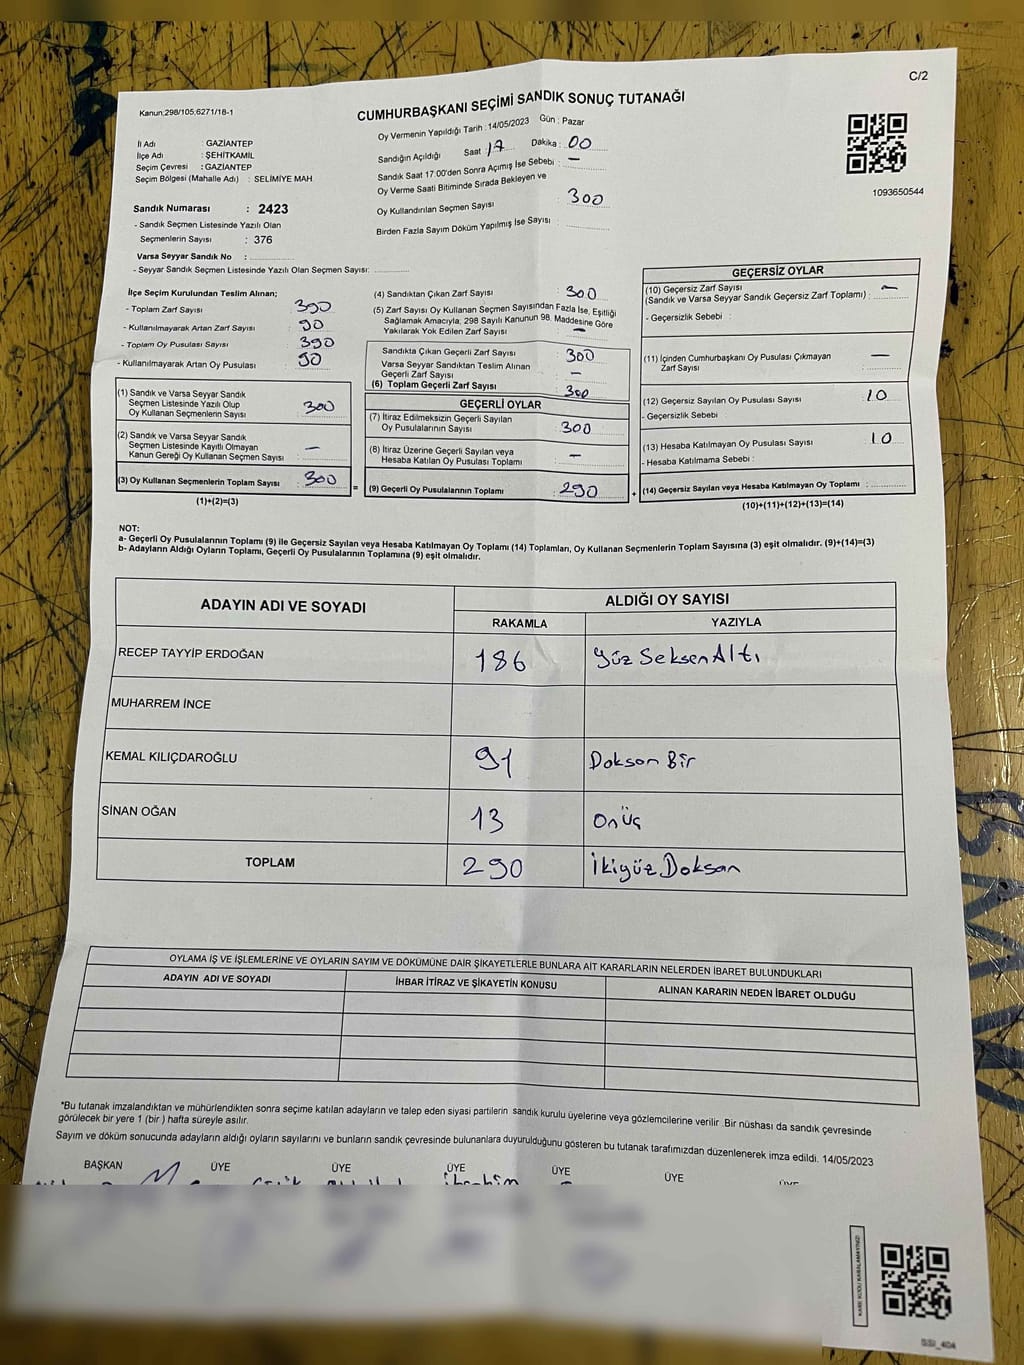 C/2
Kanun:298/105,6271/18-1
CUMHURBAŞKANI SEÇİMİ SANDIK SONUÇ TUTANAĞI
Oy Vermenin Yapıldığı Tarih : 14/05/2023 Gün : Pazar
İl Adı : GAZİANTEP
İlçe Adı : ŞEHİTKAMİL
Seçim Çevresi : GAZİANTEP
Seçim Bölgesi (Mahalle Adı) : SELİMİYE MAH
Sandığın Açıldığı Saat : 17 Dakika : 00
Sandık Saat 17.00'den Sonra Açımış İse Sebebi : —
Oy Verme Saati Bitiminde Sırada Bekleyen ve
Oy Kullandırılan Seçmen Sayısı 300
Birden Fazla Sayım Döküm Yapılmış İse Sayısı :
1093650544
Sandık Numarası : 2423
- Sandık Seçmen Listesinde Yazılı Olan
Seçmenlerin Sayısı : 376
Varsa Seyyar Sandık No :
- Seyyar Sandık Seçmen Listesinde Yazılı Olan Seçmen Sayısı:
İlçe Seçim Kurulundan Teslim Alınan;
- Toplam Zarf Sayısı : 390
- Kullanılmayarak Artan Zarf Sayısı : 90
- Toplam Oy Pusulası Sayısı : 390
- Kullanılmayarak Artan Oy Pusulası : 90
(1) Sandık ve Varsa Seyyar Sandık
Seçmen Listesinde Yazılı Olup
Oy Kullanan Seçmenlerin Sayısı : 300
(2) Sandık ve Varsa Seyyar Sandık
Seçmen Listesinde Kayıtlı Olmayan
Kanun Gereği Oy Kullanan Seçmen Sayısı : —
(3) Oy Kullanan Seçmenlerin Toplam Sayısı : 300
(1)+(2)=(3)
(4) Sandıktan Çıkan Zarf Sayısı : 300
(5) Zarf Sayısı Oy Kullanan Seçmen Sayısından Fazla İse, Eşitliği
Sağlamak Amacıyla; 298 Sayılı Kanunun 98. Maddesine Göre
Yakılarak Yok Edilen Zarf Sayısı : —
Sandıkta Çıkan Geçerli Zarf Sayısı : 300
Varsa Seyyar Sandıktan Teslim Alınan
Geçerli Zarf Sayısı : —
(6) Toplam Geçerli Zarf Sayısı : 300
GEÇERLİ OYLAR
(7) İtiraz Edilmeksizin Geçerli Sayılan
Oy Pusulalarının Sayısı : 300
(8) İtiraz Üzerine Geçerli Sayılan veya
Hesaba Katılan Oy Pusulası Toplamı : —
(9) Geçerli Oy Pusulalarının Toplamı : 290
GEÇERSİZ OYLAR
(10) Geçersiz Zarf Sayısı
(Sandık ve Varsa Seyyar Sandık Geçersiz Zarf Toplamı) : —
- Geçersizlik Sebebi :
(11) İçinden Cumhurbaşkanı Oy Pusulası Çıkmayan
Zarf Sayısı : —
(12) Geçersiz Sayılan Oy Pusulası Sayısı : 10
- Geçersizlik Sebebi
(13) Hesaba Katılmayan Oy Pusulası Sayısı : 10
- Hesaba Katılmama Sebebi :
(14) Geçersiz Sayılan veya Hesaba Katılmayan Oy Toplamı :
(10)+(11)+(12)+(13)=(14)
NOT:
a- Geçerli Oy Pusulalarının Toplamı (9) ile Geçersiz Sayılan veya Hesaba Katılmayan Oy Toplamı (14) Toplamları, Oy Kullanan Seçmenlerin Toplam Sayısına (3) eşit olmalıdır. (9)+(14)=(3)
b- Adayların Aldığı Oyların Toplamı, Geçerli Oy Pusulalarının Toplamına (9) eşit olmalıdır.
ADAYIN ADI VE SOYADI ALDIĞI OY SAYISI
RAKAMLA YAZIYLA
RECEP TAYYİP ERDOĞAN 186 Yüz Seksen Altı
MUHARREM İNCE
KEMAL KILIÇDAROĞLU 91 Doksan Bir
SİNAN OĞAN 13 Onüç
TOPLAM 290 İkiyüz Doksan
OYLAMA İŞ VE İŞLEMLERİNE VE OYLARIN SAYIM VE DÖKÜMÜNE DAİR ŞİKAYETLERLE BUNLARA AİT KARARLARIN NELERDEN İBARET BULUNDUKLARI
ADAYIN ADI VE SOYADI İHBAR İTİRAZ VE ŞİKAYETİN KONUSU ALINAN KARARIN NEDEN İBARET OLDUĞU
*Bu tutanak imzalandıktan ve mühürlendikten sonra seçime katılan adayların ve talep eden siyasi partilerin sandık kurulu üyelerine veya gözlemcilerine verilir. Bir nüshası da sandık çevresinde
görülecek bir yere 1 (bir ) hafta süreyle asılır.
Sayım ve döküm sonucunda adayların aldığı oyların sayılarını ve bunların sandık çevresinde bulunanlara duyurulduğunu gösteren bu tutanak tarafımızdan düzenlenerek imza edildi. 14/05/2023
BAŞKAN ÜYE ÜYE ÜYE ÜYE ÜYE
KARE KODU KARALAMAYINIZ!